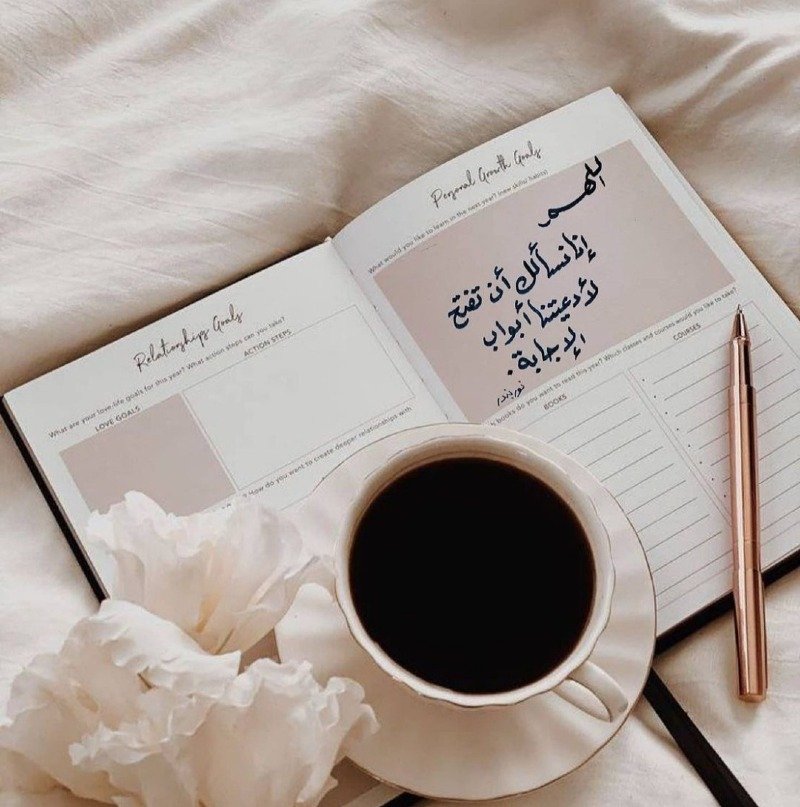 Relationship Goals
What are your love-life goals for this year? What action steps can you take?
LOVE GOALS
ACTION STEPS
? How do you want to create deeper relationships with
Personal Growth Goals
What would you like to learn in the next year? (new skills/ habits)
اللهم
إنا نسألك أن تفتح
لأدعيتنا أبواب
الإجابة.
books do you want to read this year? Which classes and courses would you like to take?
BOOKS
COURSES